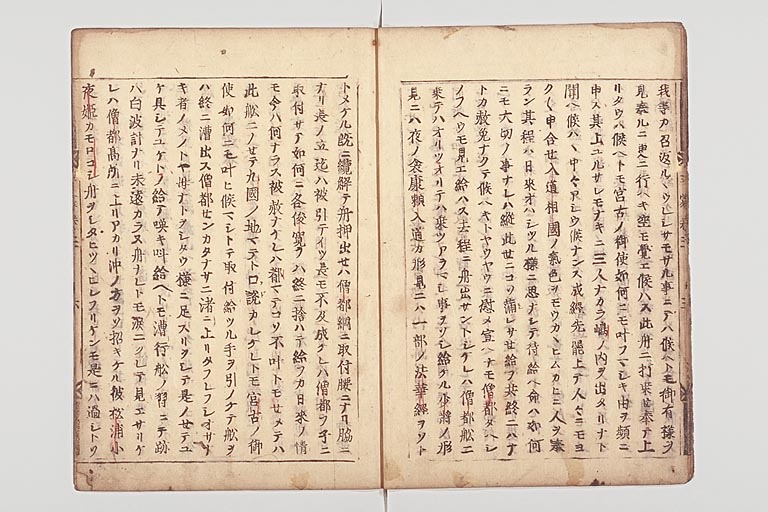 我等カ召返ルヽウレシサモサル事ニテハ候ヘトモ御有様ヲ
見奉ルニ更ニ行ヘキ空モ覚エ候ハス此舟ニ打乗セ奉テ上
リタウハ候ヘトモ宮古ノ御使如何ニモ叶フマシキ由ヲ頻ニ
申ス其上ユルサレモナキニ三人ナカラ嶋ノ内ヲ出タリナト
聞ヘ候ハヽ中々アシウ候ナンス成経先罷上テ人々ニモヨ
ク々申合セ入道相國ノ氣色ヲモウカヽヒムカヒニ人ヲ奉
ラン其程ハ日來オハシツル様ニ思ナシテ待給ヘ命ハ如何
ニモ大切ノ事ナレハ縦此世ニコソ漏レサセ給フ共終ニハナ
トカ赦免ナクテ候ヘキトヤウヤウニ慰メ宣ヘトモ僧都タヘシ
ノフヘウモ見エ給ハス去程ニ舟出サントシケレハ僧都舩ニ
乗テハオリツオリテハ乗ツアラマシ事ヲソシ給ケル少将ノ形
見ニハ夜ノ衾康頼入道カ形見ニハ一部ノ法華經ヲソト
トメケル既ニ纜解テ舟押出セハ僧都綱ニ取付腰ニナリ脇ニ
ナリ長ノ立迄ハ被引テイツ長モ不及成ケレハ僧都ヲ子ニ
取付サテ如何ニ各俊寛ヲハ終ニ捨ハテ給フカ日來ノ情
モ今ハ何ナラス被赦ナケレハ都マテコソ不叶トモセメテハ
此舩ニノセテ九國ノ地マテトロ説カレケレトモ宮古ノ御
使如何ニモ叶ヒ候マシトテ取付給ツル手ヲ引ノケテ舩ヲ
ハ終ニ漕出ス僧都センカタナサニ渚ニ上リタフレフシオサナ
キ者ノメノトヤ母ナトヲシタウ様ニ足スリヲシテ是ノセテユ
ケ具シテユケトノ給テ喚キ叫給ヘトモ漕行舩ノ習ニテ跡
ハ白波計ナリ未遠カラヌ舟ナレトモ涙ニクレテ見エサリケ
レハ僧都高所ニ上リアカリ沖ノ方ヲソ招キケル彼松浦小
夜姫カモロコシ舟ヲシタヒツヽヒレフリケンモ是ニハ過シトソ